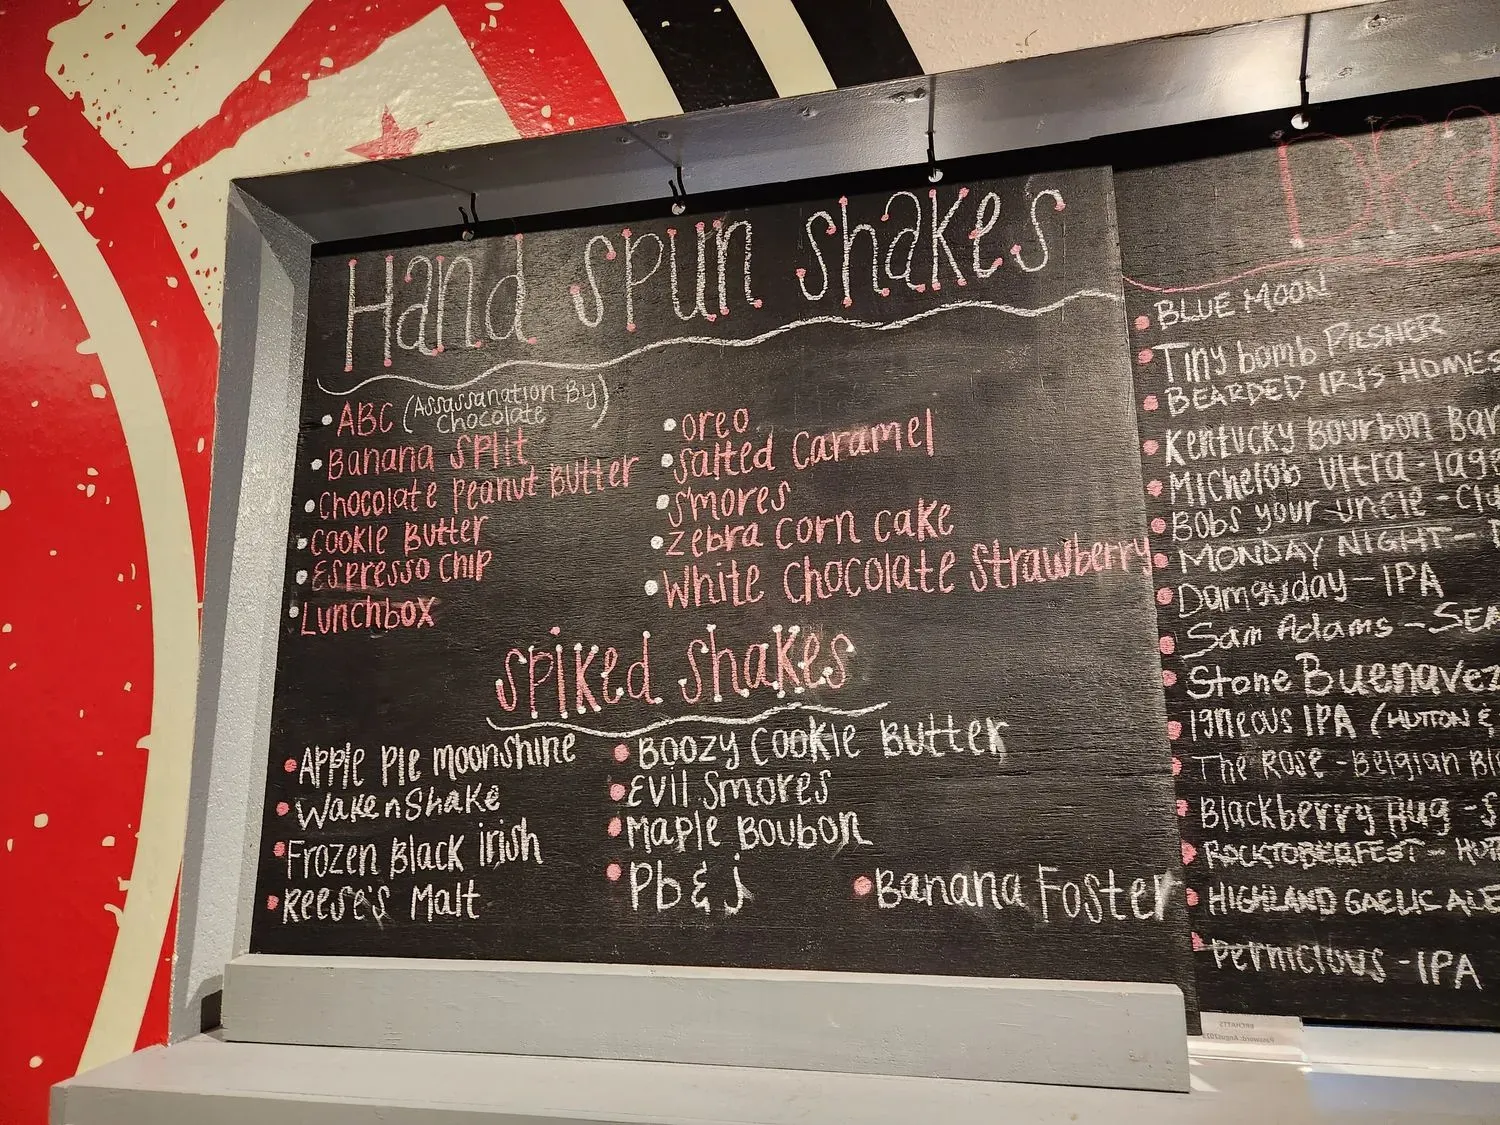 Hand spun shakes
ABC (Assassanation By
Chocolate)
Banana Split
Chocolate Peanut Butter
Cookie Butter
Espresso Chip
Lunchbox
oreo
Salted Caramel
S'mores
Zebra Corn Cake
White Chocolate Strawberry
Spiked Shakes
Apple Pie Moonshine
Wake n Shake
Frozen Black Irish
Reese's Malt
Boozy Cookie Butter
Evil Smores
Maple Boubon
Pb & j
Banana Foster
BLUE MOON
Tiny bomb PILSNER
BEARDED IRIS HOMES
Kentucky Bourbon Bar
Michelob Ultra - lag
Bobs your uncle -
MONDAY NIGHT -
Damguday - IPA
Sam Adams - SEA
Stone Buenavez
Igneous IPA (HUTTON &
The Rose - Belgian Bl
Blackberry Hug - S
ROCKTOBERFEST - HUT
HIGHLAND GAELIC ALE
Pernicious - IPA